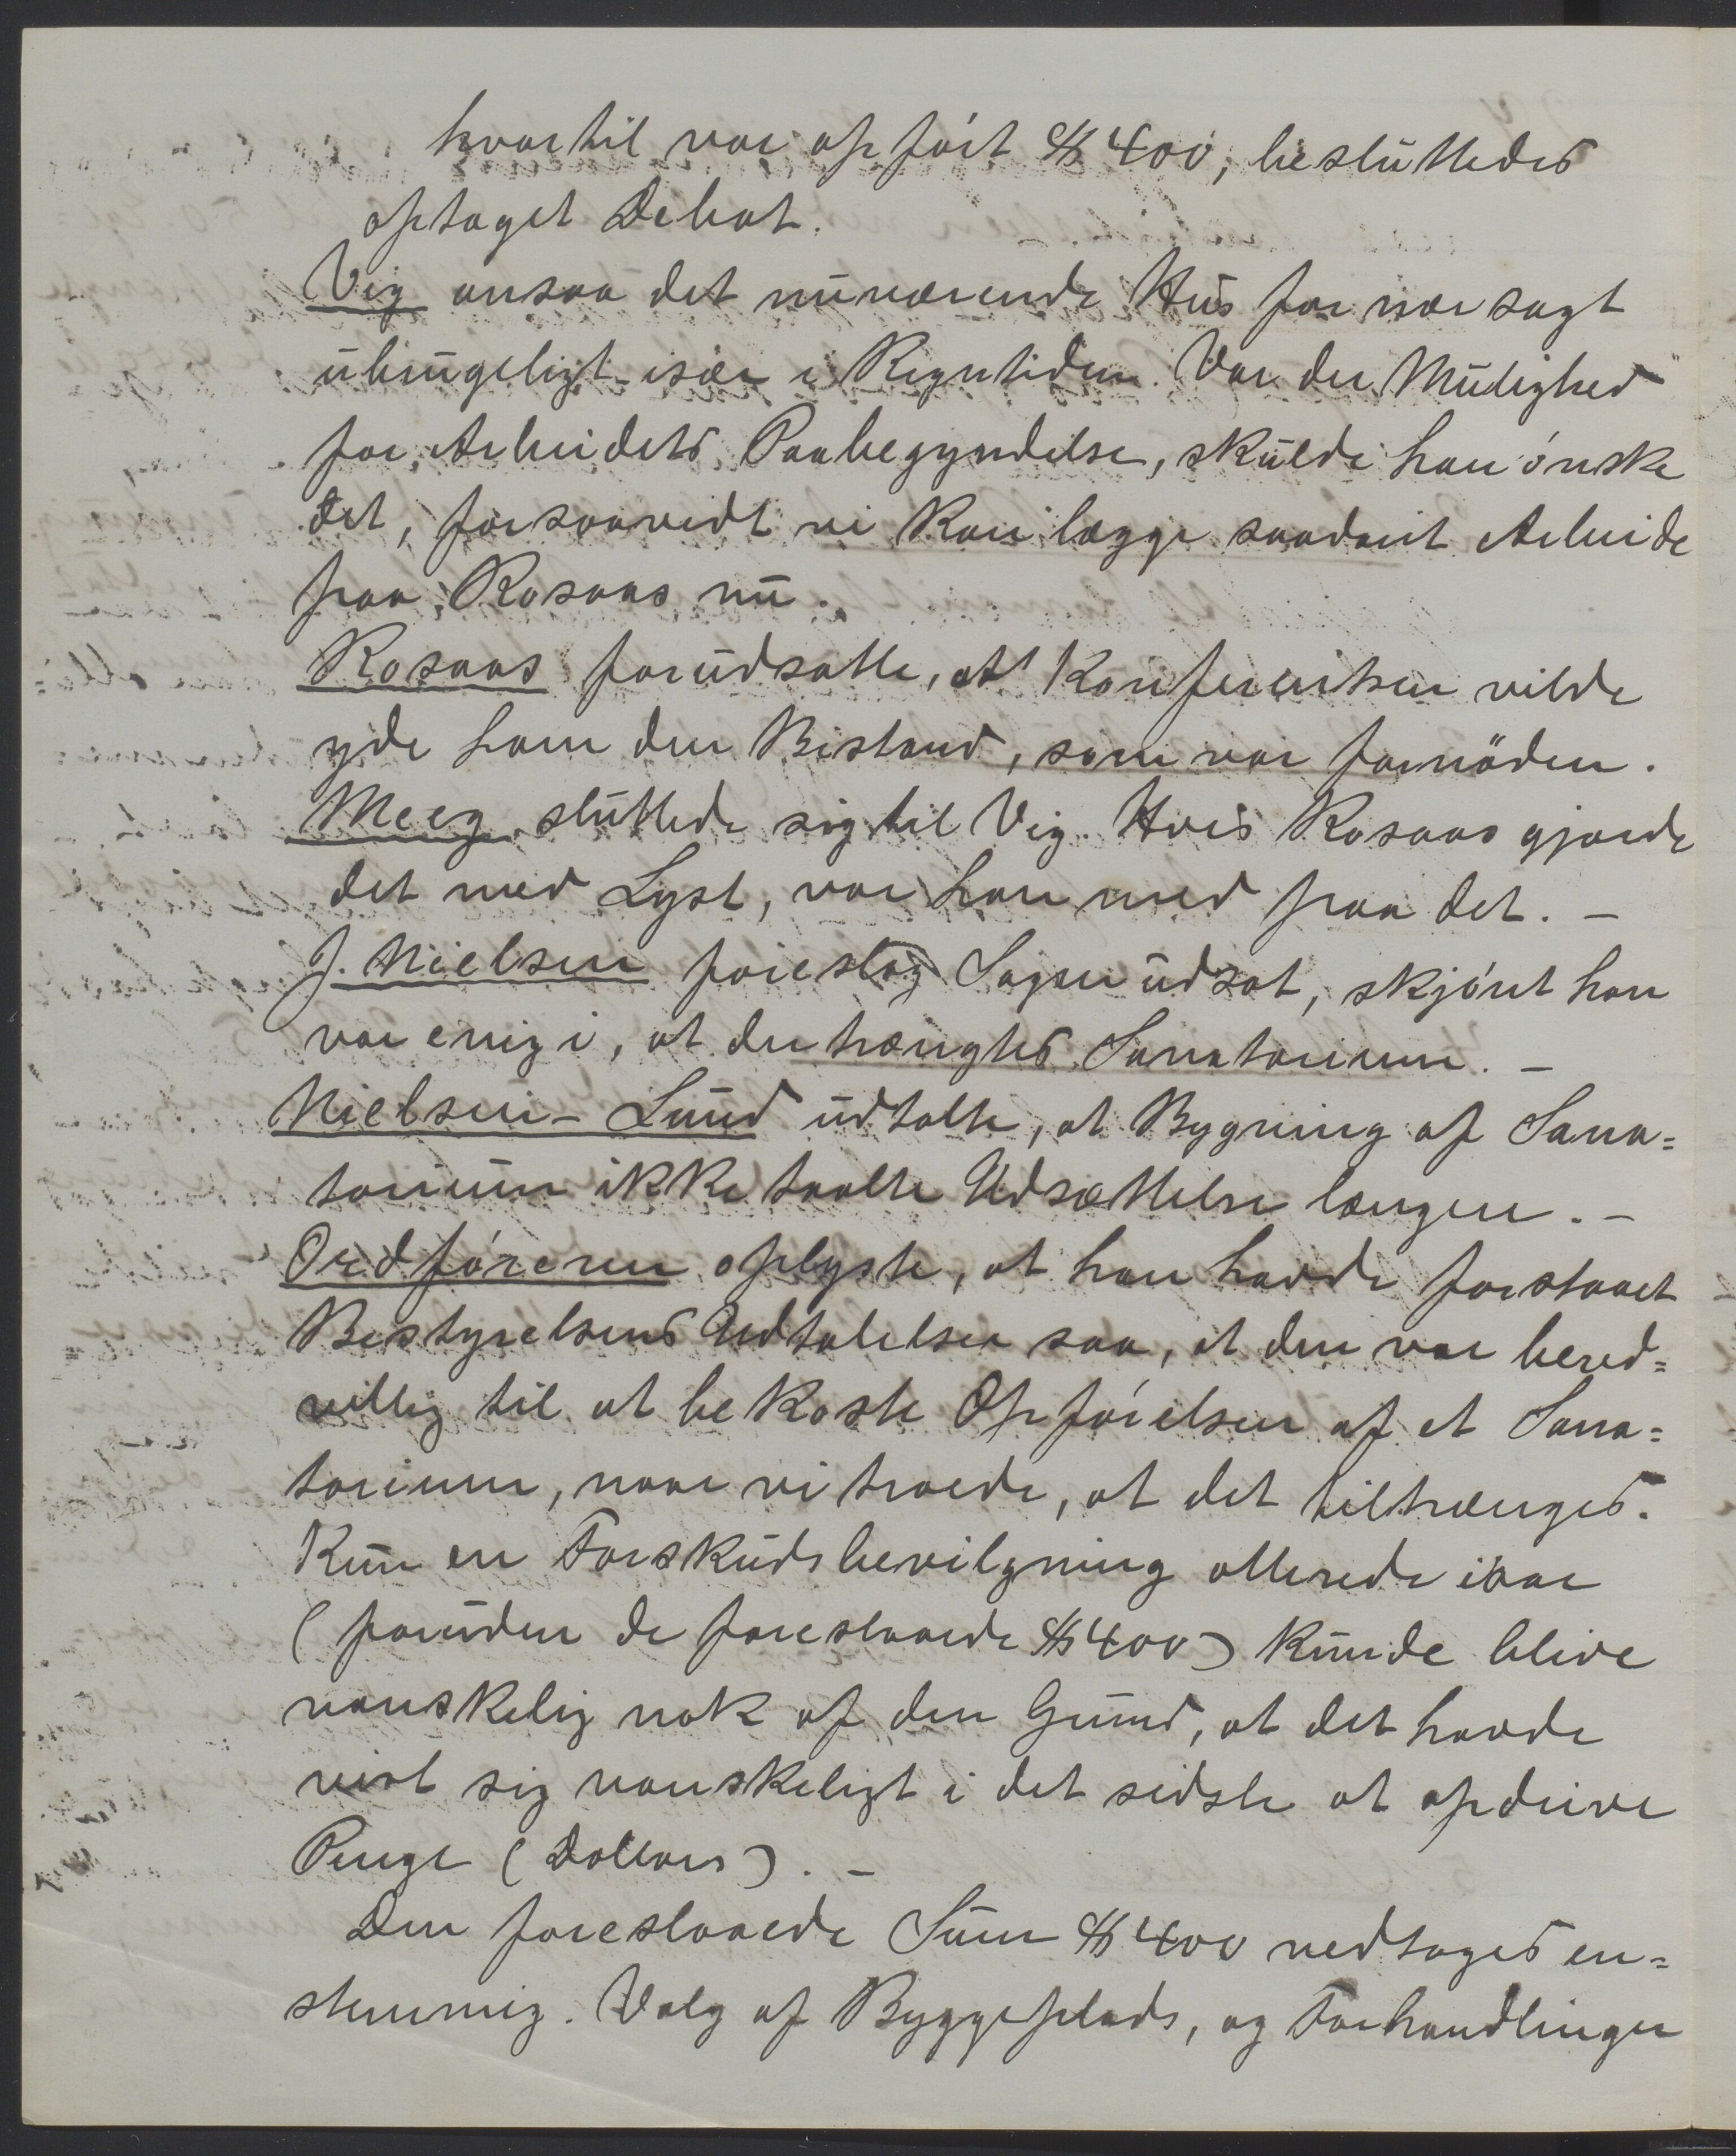 hvortil var opført $ 400, besluttedes
optaget Debat.
Vig ansaa det nuværende Hus for nær sagt
ubrugeligt især i Regntiden. Var der Mulighed
for Arbeidets Paabegyndelse, skulde han ønske
det, forsaavidt vi kan lægge saadant Arbeide
paa Rosaas nu.
Rosaas forudsatte, at Konferentsen vilde
yde ham den Bistand, som var fornöden.
Meeg sluttede sig til Vig. Hvis Rosaas gjorde
det med Lyst, var han med paa det. -
J. Nielsen foreslog Sagen udsat, skjønt han
var enig i, at der trængtes Sanatorium. -
Nielsen-Lund udtalte, at Bygning af Sana=
torium ikke taalte Udsættelse længer. -
Ordføreren oplyste, at han havde forstaaet
Bestyrelsens Udtalelser saa, at den var bered=
villig til at bekoste Opførelsen af et Sana=
torium, naar vi troede, at det tiltrænges.
Kun en Forskudsbevilgning allerede iaar
(foruden de foreslaaede $ 400) kunde blive
vanskelig nok af den Grund, at det havde
vist sig vanskeligt i det sidste at opdrive
Penge (Dollars). -
Den foreslaaede Sum $ 400 vedtoges en=
stemmig. Valg af Byggeplads, og Forhandlinger